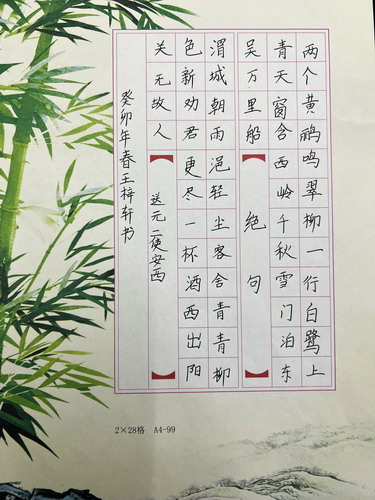 两个黄鹂鸣翠柳一行白鹭上
青天窗含西岭千秋雪门泊东
吴万里船 绝句
渭城朝雨浥轻尘客舍青青柳
色新劝君更尽一杯酒西出阳
关无故人 送元二使安西
癸卯年春王梓轩书
2×28格 A4-99